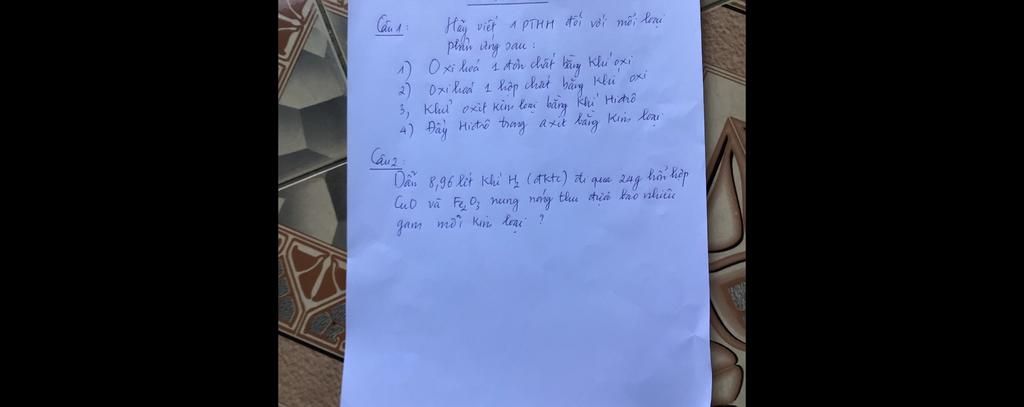 Câu 1: Hãy viết 1 PTHH đối với mỗi loại
phản ứng sau:
1) Oxi hoá 1 đơn chất bằng khí oxi
2) Oxi hoá 1 hợp chất bằng khí oxi
3, Khử oxit kim loại bằng khí Hiđrô
4) Đẩy Hiđrô trong axit bằng kim loại
Câu 2:
Dẫn 8,96 lít khí H₂ (đktc) đi qua 24g hỗn hợp
CuO và Fe₂O₃ nung nóng thu được bao nhiêu
gam mỗi kim loại ?